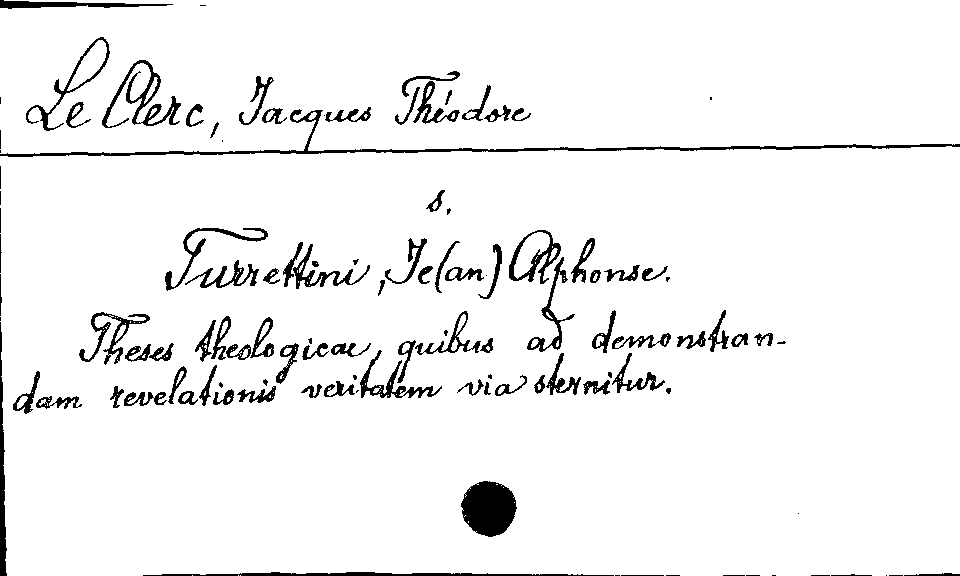 Le Clerc, Jacques Théodore
s.
Turrettini, Je(an) Alphonse.
Theses theologicae, quibus ad demonstran-
dam revelationis veritatem via sternitur.